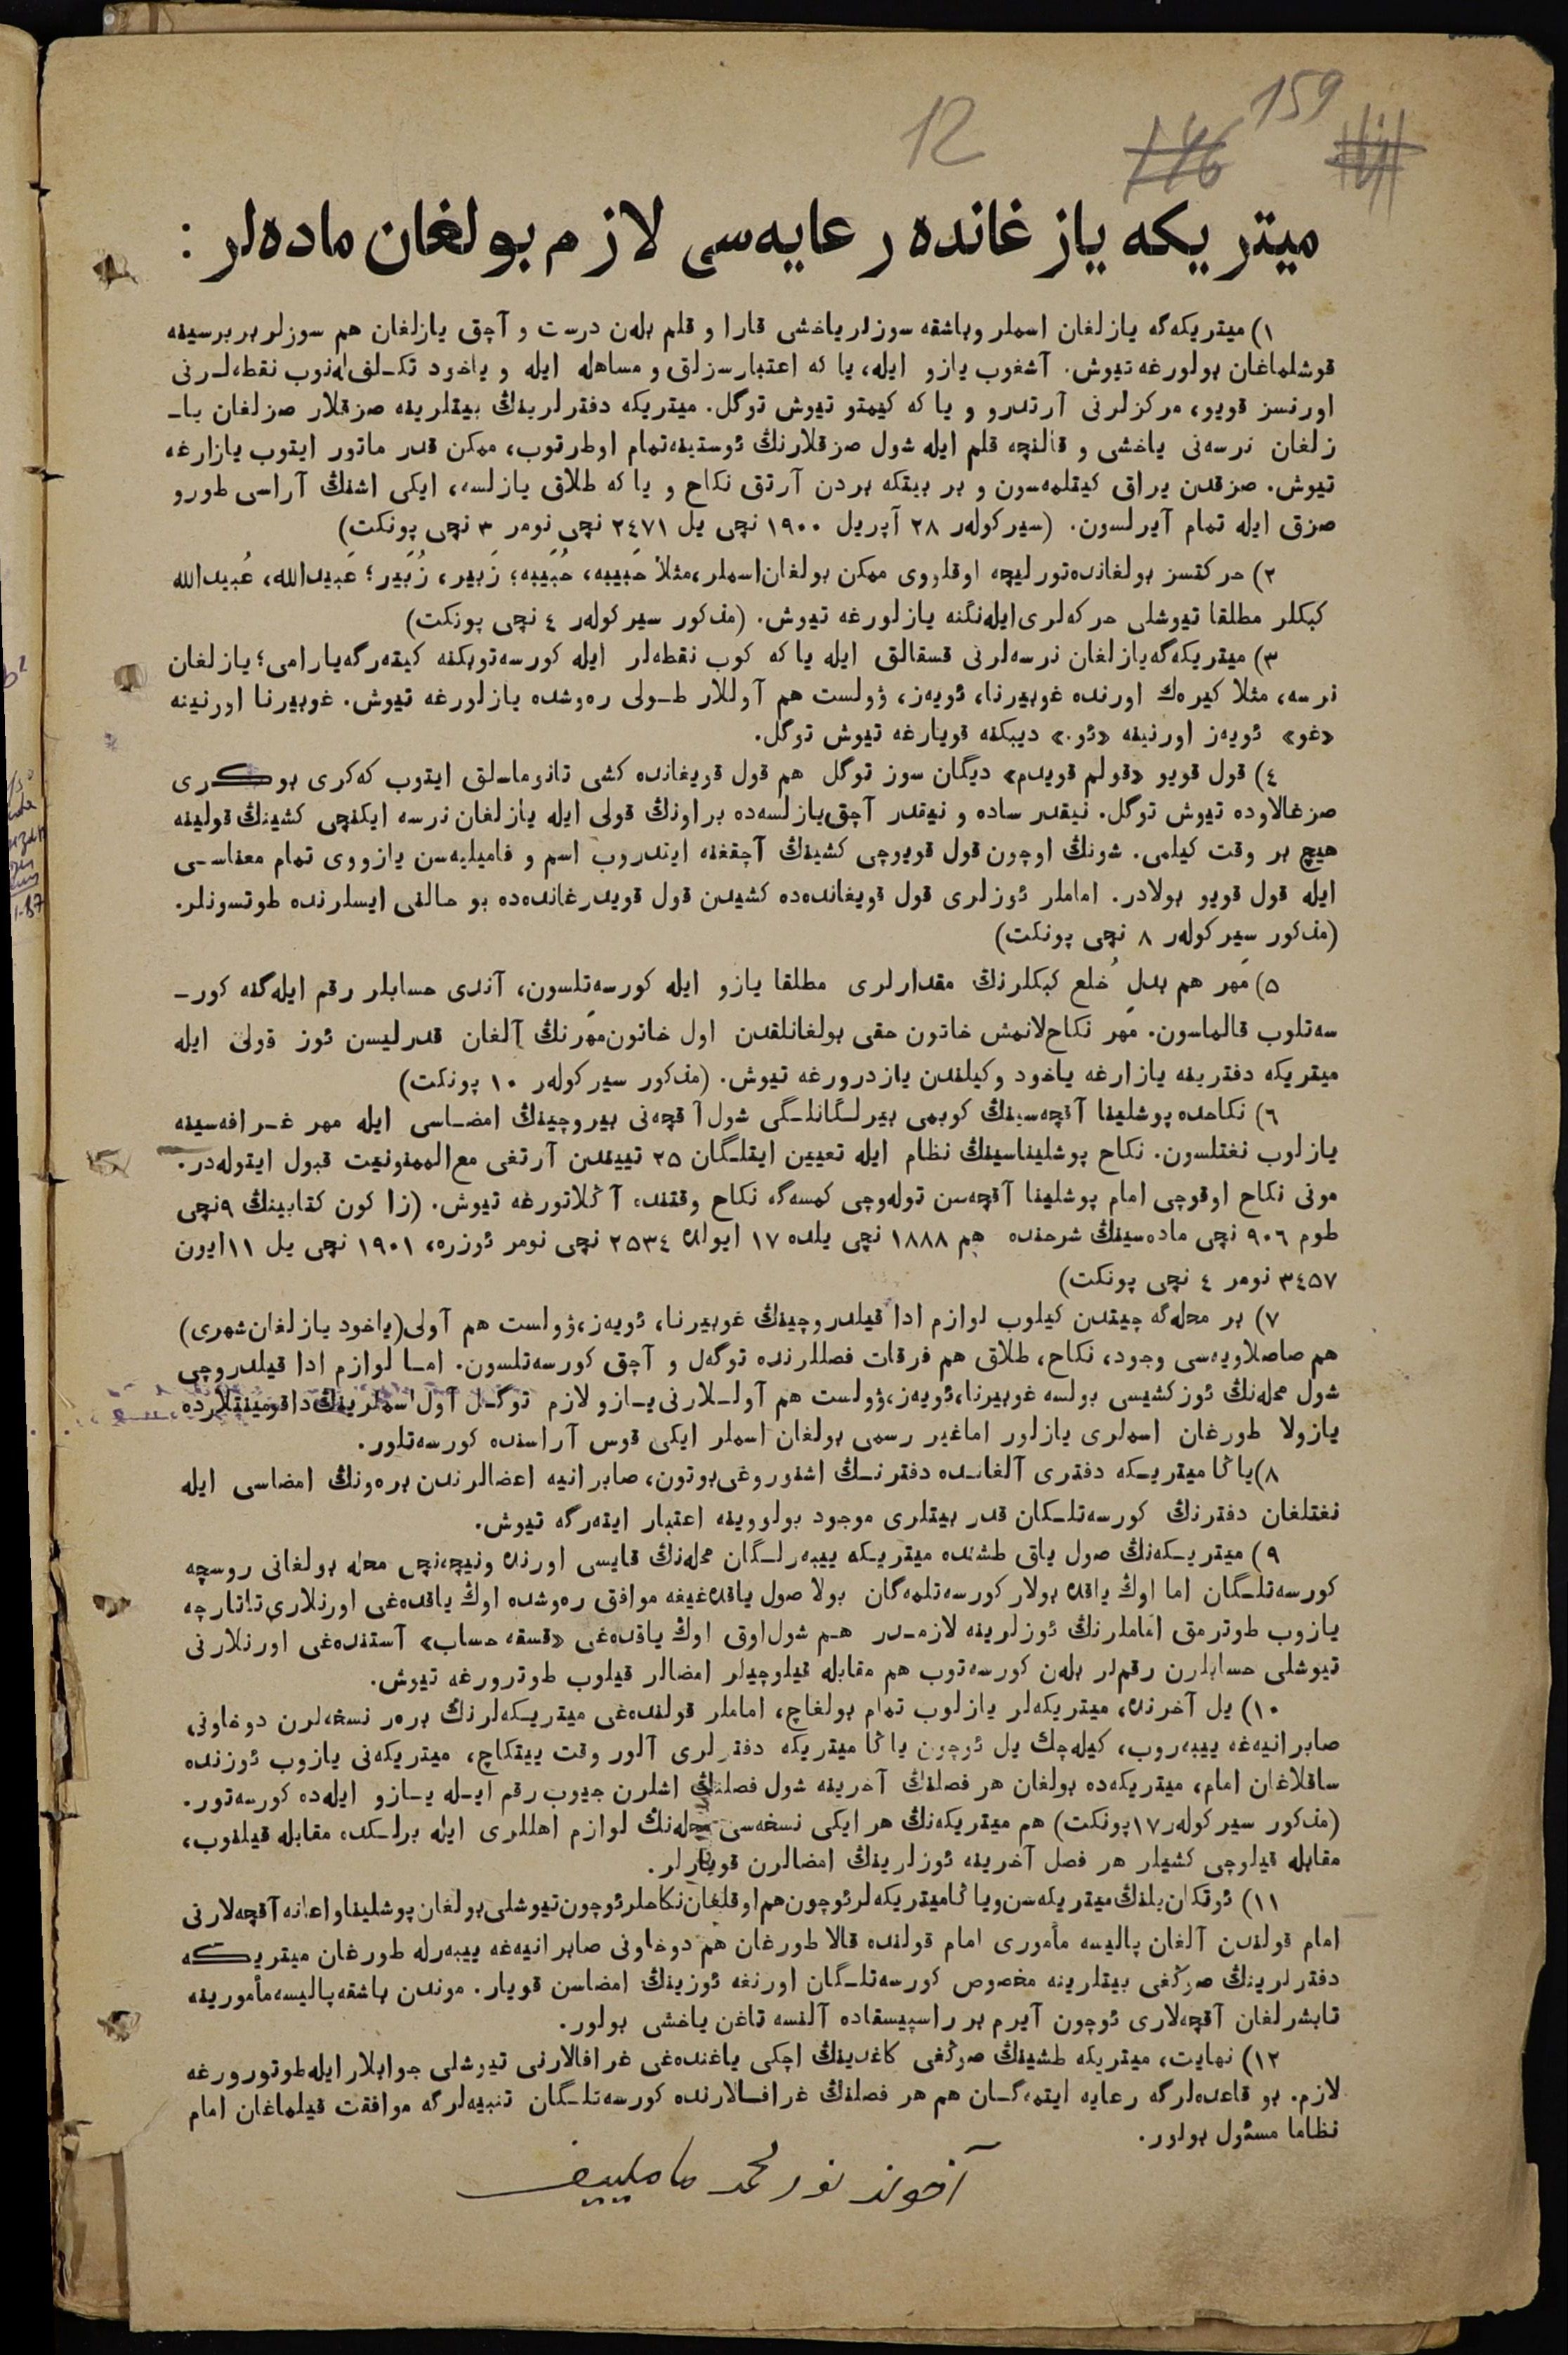 12
146
159
میتریکه یازغانده رعایه‌سی لازم بولغان ماده‌لر :
١) میتریکه‌گه یازلغان اسملر وباشقه سوزلر یاخشی قارا و قلم بله‌ن درست و آچق یازلغان هم سوزلر بربرسینه
قوشلماغان بولورغه تیوش. آشغوب یازو ایله، یا که اعتبارسزلق و مساهله ایله و یاخود تکـلف‌له‌نوب نقطه‌لـرنی
اورنسز قویو، مرکزلرنی آرتدرو و یا که کیمتو تیوش توگل. میتریکه دفترلرینڭ بیتلرینه صزقلار صزلغان یا‌ـ
زلغان نرسه‌نی یاخشی و قالنچه قلم ایله شول صزقلارنڭ ئوستینه‌تمام اوطرتوب، ممکن قدر ماتور ایتوب یازارغه
تیوش. صزقدن یراق کیتلمه‌سون و بر بیتکه بردن آرتق نکاح و یا که طلاق یازلسه، ایکی اشنڭ آراسی طورو
صزق ایله تمام آیرلسون. (سیرکوله‌ر ٢٨ آپریل ١٩٠٠ نچی یل ٢٤٧١ نچی نومر ٣ نچی پونکت)
٢) حرکتسز بولغانده‌تورلیچه اوقلووی ممکن بولغان‌اسملر،مثلاً حَبیبه، حُبَیبه؛ زَبیر، زُبَیر؛ عَبیدالله، عُبیدالله
کبکلر مطلقا تیوشلی حرکه‌لری‌ایله‌نگنه یازلورغه تیوش. (مذکور سیرکوله‌ر ٤ نچی پونکت)
٣) میتریکه‌گه‌یازلغان نرسه‌لرنی قسقالق ایله یا که کوب نقطه‌لر ایله کورسه‌توبکنه کیته‌رگه‌یارامی؛ یازلغان
نرسه، مثلا کیره‌ك اورنده غوبیرنا، ئویه‌ز، ۋولست هم آوللار طـولی ره‌وشده یازلورغه تیوش. غوبیرنا اورنینه
«غو» ئویه‌ز اورنینه «ئو.» دیبکنه قویارغه تیوش توگل.
٤) قول قویو «قولم قویدم» دیگان سوز توگل هم قول قویغانده کشی تانوماسلق ایتوب که‌کری بوکـری
صزغالاوده تیوش توگل. نیقدر ساده و نیقدر آچق‌یازلسه‌ده براونڭ قولی ایله یازلغان نرسه ایکنچی کشینڭ قولینه
هیچ بر وقت کیلمی. شونڭ اوچون قول قویوچی کشینڭ آچقغنه ایتدروب اسم و فامیلیه‌سن یازووی تمام معناسـی
ایله قول قویو بولادر. اماملر ئوزلری قول قویغانده‌ده کشیدن قول قویدرغانده‌ده بو حالنی ایسلرنده طوتسونلر.
(مذکور سیرکوله‌ر ٨ نچی پونکت)
٥) مَهر هم بدل خُلع کبکلرنڭ مقدارلری مطلقا یازو ایله کورسه‌تلسون، آندی حسابلر رقم ایله‌گنه کورـ
سه‌تلوب قالماسون. مَهر نکاح‌لانمش خاتون حقی بولغانلقدن اول خاتون‌مَهرنڭ آلغان قدرلیسن ئوز قولی ایله
میتریکه دفترینه یازارغه یاخود وکیلندن یازدرورغه تیوش. (مذکور سیرکوله‌ر ١٠ پونکت)
٦) نکاحده‌پوشلینا آقچه‌سینڭ کوبمی بیرلـگانلـگی شول‌آقچه‌نی بیروچینڭ امضـاسی ایله مهر غـرافه‌سینه
یازلوب نغتلسون. نکاح پوشلیناسینڭ نظام ایله تعیین ایتلـگان ٢٥ تییندن آرتغی مع‌الممنونیت قبول ایتوله‌در.
مونی نکاح اوقوچی امام پوشلینا آقچه‌سن توله‌وچی کمسه‌گه نکاح وقتنده آڭلاتورغه تیوش. (زاکون کتابینڭ ٩نچی
طوم ٩٠٦ نچی ماده‌سینڭ شرحنده هم ١٨٨٨ نچی یلده ١٧ ایولده ٢٥٣٤ نچی نومر ئوزره، ١٩٠١ نچی یل ١١ایون
٣٤٥٧ نومر ٤ نچی پونکت)
٧) بر محله‌گه چیتدن کیلوب لوازم ادا قیلدروچینڭ غوبیرنا، ئویه‌ز،ۋولست هم آولی(یاخود یازلغان‌شهری)
هم صاصلاویه‌سی وجود، نکاح، طلاق هم فرقات فصللرنده توگه‌ل و آچق کورسه‌تلسون. امـا لوازم ادا قیلدروچی
شول محله‌نڭ ئوزکشیسی بولسه غوبیرنا،ئویه‌ز،ۋولست هم آولـلارنی یـازو لازم توگـل آول‌اسملرینڭ‌داقومینتلارده
یازولا طورغان اسملری یازلور اماغیر رسمی بولغان اسملر ایکی قوس آراسنده کورسه‌تلور.
٨)یاڭا میتریـکه دفتری آلغانـده دفترنـڭ اشنوروغی‌بوتون، صابرانیه اعضالرندن بره‌ونڭ امضاسی ایله
نغتلغان دفترنڭ کورسه‌تلـکان قدر بیتلری موجود بولووینه اعتبار ایته‌رگه تیوش.
٩) میتریـکه‌نڭ صول یاق طشنده میتریـکه ییبه‌رلـگان محله‌نڭ قایسی اورنده ونیچه‌نچی محله بولغانی روسچه
کورسه‌تلـگان اما اوڭ یاقده بولار کورسه‌تلمه‌گان بولا صول یاقده‌غیغه موافق ره‌وشده اوڭ یاقده‌غی اورنلاری‌تاتارچه
یازوب طوترمق اماملرنڭ ئوزلرینه لازمـدر هـم شول‌اوق اوڭ یاقده‌غی «قسقه حساب» آستنده‌غی اورنلارنی
تیوشلی حسابلرن رقملر بله‌ن کورسه‌توب هم مقابله قیلوچیلر امضالر قیلوب طوترورغه تیوش.
١٠) یل آخرنده، میتریکه‌لر یازلوب تمام بولغاچ، اماملر قولنده‌غی میتریـکه‌لرنڭ بره‌ر نسخه‌لرن دوخاونی
صابرانیه‌غه ییبه‌روب، کیله‌چك یل ئوچون یاڭا میتریکه دفترلری آلور وقت ییتکاچ، میتریکه‌نی یازوب ئوزنده
ساقلاغان امام، میتریکه‌ده بولغان هر فصلنڭ آخرینه شول فصلنڭ اشلرن جیوب رقم ایـله یـازو ایله‌ده کورسه‌تور.
(مذکور سیرکوله‌ر١٧پونکت) هم میتریکه‌نڭ هر ایکی نسخه‌سی محله‌نڭ لوازم اهللری ایله برلـکده مقابله قیلنوب،
مقابله قیلوچی کشیلر هر فصل آخرینه ئوزلرینڭ امضالرن قویارلر.
١١) ئوتکان‌یلنڭ‌میتریکه‌سن‌ویاڭامیتریکه‌لرئوچون‌هم‌اوقلغان‌نکاحلرئوچون‌تیوشلی‌بولغان‌پوشلیناواعانه‌آقچه‌لارنی
امام قولندن آلغان پالیسه مأموری امام قولنده قالا طورغان هم دوخاونی صابرانیه‌غه ییبه‌رله طورغان میتریـکه
دفترلرینڭ صوڭغی بیتلرینه مخصوص کورسه‌تلـگان اورنغه ئوزینڭ امضاسن قویار. موندن باشقه‌پالیسه‌مأمورینه
تابشرلغان آقچه‌لاری ئوچون آیرم بر راسپیسقاده آلنسه تاغن یاخشی بولور.
١٢) نهایت، میتریکه طشینڭ صوڭغی کاغدینڭ اچکی یاغنده‌غی غرافالارنی تیوشلی جوابلارایله‌طوتورورغه
لازم. بو قاعده‌لرگه رعایه ایتمه‌گـان هم هر فصلنڭ غرافـالارنده کورسه‌تلـگان تنبیه‌لرگه موافقت قیلماغان امام
نظاما مسئول بولور.
آخوند نورمحمد ماملییف